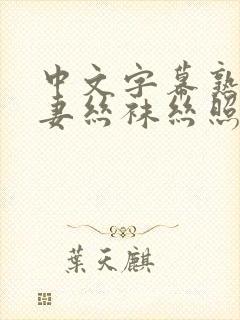 中文字幕熟
妻丝袜丝照
葉天麒